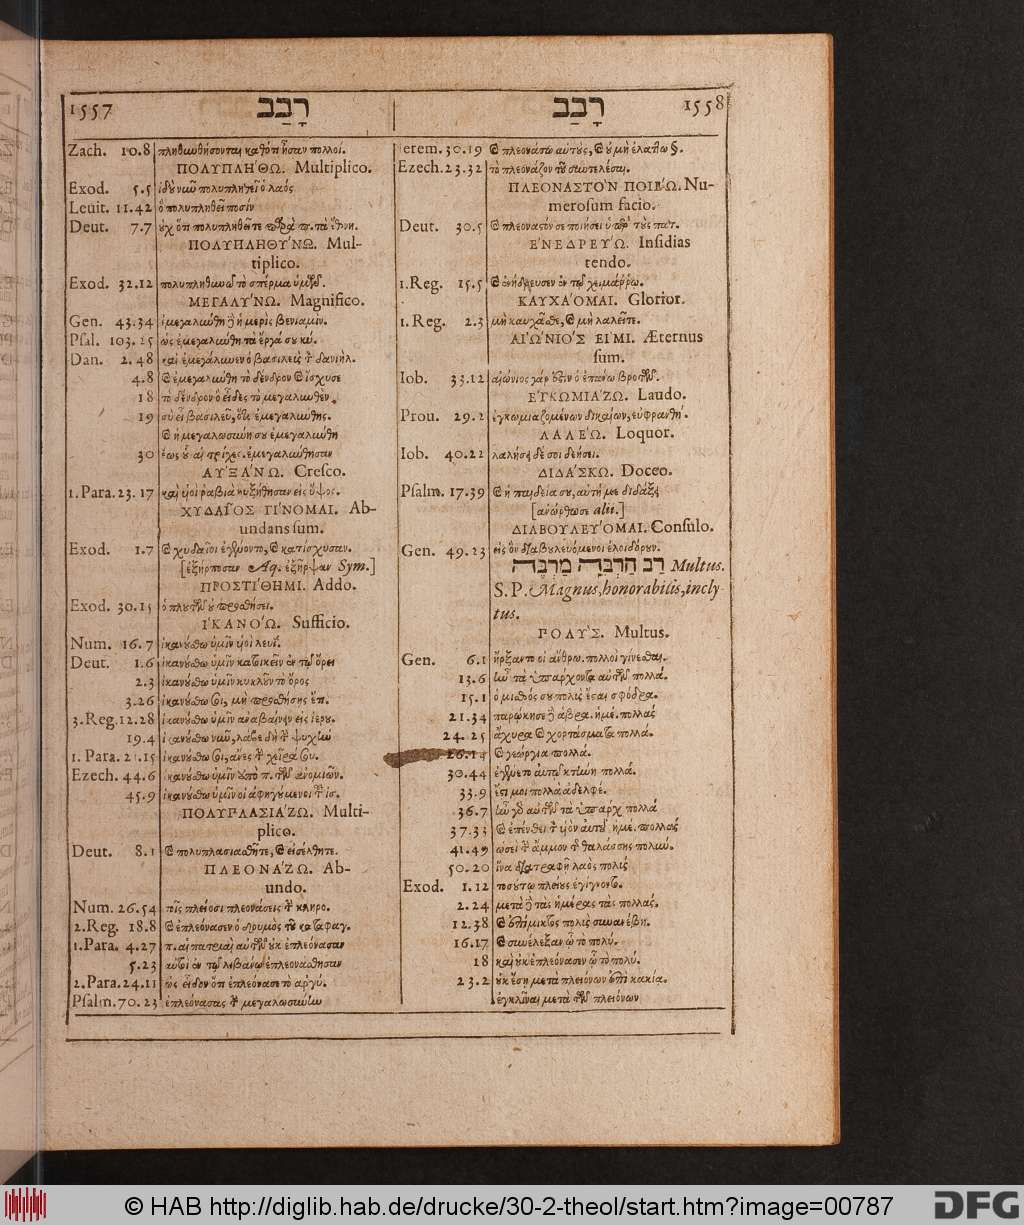 1557 רָבַב
Zach. 10.8 πληθυνθήσονται καθότι ἦσαν πολλοί.
ΠΟΛΥΠΛΗΘΩ. Multiplico.
Exod. 5.5 ἰδοὺ νῦν πολυπληθεῖ ὁ λαός
Leuit. 11.42 ὃ πολυπληθεῖ ποσίν
Deut. 7.7 οὐχ ὅτι πολυπληθεῖτε παρὰ π. τὰ ἔθνη.
ΠΟΛΥΠΛΗΘΥΝΩ. Mul-
tiplico.
Exod. 32.12 πολυπληθυνῶ τὸ σπέρμα ὑμῶν.
ΜΕΓΑΛΥΝΩ. Magnifico.
Gen. 43.34 ἐμεγαλύνθη δὲ ἡ μερὶς βενιαμίν.
Psal. 103.25 ὡς ἐμεγαλύνθη τὰ ἔργά σου κύ.
Dan. 2.48 καὶ ἐμεγάλυνεν ὁ βασιλεὺς τὸν δανιήλ.
4.8 καὶ ἐμεγαλύνθη τὸ δένδρον καὶ ἴσχυσε
18 τὸ δένδρον ὃ εἶδες τὸ μεγαλυνθέν.
19 σὺ εἶ βασιλεῦ, ὅτι ἐμεγαλύνθης.
καὶ ἡ μεγαλωσύνη σου ἐμεγαλύνθη
30 ἕως οὗ αἱ τρίχες. ἐμεγαλύνθησαν
ΑΥΞΑΝΩ. Cresco.
1.Para. 23.17 καὶ υἱοὶ ραβιὰ ηὐξήθησαν εἰς ὕψος.
ΧΥΔΑΙΟΣ ΓΙΝΟΜΑΙ. Ab-
undans sum.
Exod. 1.7 καὶ χυδαῖοι ἐγένοντο, καὶ κατίσχυσαν.
[ἐξήρποσαν Aq. ἐξῆρψαν Sym.]
ΠΡΟΣΤΙΘΗΜΙ. Addo.
Exod. 30.15 ὁ πλουτῶν οὐ προσθήσει.
ΙΚΑΝΟΩ. Sufficio.
Num. 16.7 ἱκανούσθω ὑμῖν υἱοὶ λευί.
Deut. 1.6 ἱκανούσθω ὑμῖν κατοικεῖν ἐν τῷ ὄρει
2.3 ἱκανούσθω ὑμῖν κυκλοῦν τὸ ὄρος
3.26 ἱκανούσθω σοι, μὴ προσθήσης ἔτι.
3.Reg. 12.28 ἱκανούσθω ὑμῖν ἀναβαίνειν εἰς ἱερου.
19.4 ἱκανούσθω νῦν, λάβε δὴ τὴν ψυχὴν
1. Para. 21.15 ἱκανούσθω σοι, ἄνες τὴν χεῖρά σου.
Ezech. 44.6 ἱκανούσθω ὑμῖν ἀπὸ π. τῶν ἀνομιῶν.
45.9 ἱκανούσθω ὑμῖν οἱ ἀφηγούμενοι τοῦ ἰσ.
ΠΟΛΥΠΛΑΣΙΑΖΩ. Multi-
plico.
Deut. 8.1 καὶ πολυπλασιασθῆτε, καὶ εἰσέλθητε.
ΠΛΕΟΝΑΖΩ. Ab-
undo.
Num. 26.54 τοῖς πλείοσι πλεονάσεις τὴν κληρο.
2.Reg. 18.8 καὶ ἐπλεόνασεν ὁ δρυμὸς τοῦ καταφαγ.
1.Para. 4.27 π. αἱ πατριαὶ αὐτῶν οὐκ ἐπλεόνασαν
5.23 αὐτοὶ ἐν τῷ λιβάνῳ ἐπλεονάσθησαν
2.Para. 24.11 ὡς εἶδον ὅτι ἐπλεόνασε τὸ ἀργύ.
Psalm. 70.23 ἐπλεόνασας τὴν μεγαλωσύνην
רָבַב 1558
erem. 30.19 καὶ πλεονάσω αὐτούς, καὶ οὐ μὴ ἐλαττω §.
Ezech. 23.32 τὸ πλεονάζον τοῦ συντελέσαι.
ΠΛΕΟΝΑΣΤΟΝ ΠΟΙΕΩ. Nu-
merosum facio.
Deut. 30.5 καὶ πλεοναστόν σε ποιήσει ὑπὲρ τοὺς πατ.
ΕΝΕΔΡΕΥΩ. Insidias
tendo.
1.Reg. 15.5 καὶ ἐνήδρευσεν ἐν τῷ χειμάρρῳ.
ΚΑΥΧΑΟΜΑΙ. Glorior.
1.Reg. 2.3 μὴ καυχᾶσθε, καὶ μὴ λαλεῖτε.
ΑΙΩΝΙΟΣ ΕΙΜΙ. Æternus
sum.
Iob. 33.12 αἰώνιος γάρ ἐστιν ὁ ἐπάνω βροτῶν.
ΕΓΚΩΜΙΑΖΩ. Laudo.
Prou. 29.2 ἐγκωμιαζομένων δικαίων, εὐφρανθή.
ΛΑΛΕΩ. Loquor.
Iob. 40.22 λαλήσει δέ σοι δεήσει.
ΔΙΔΑΣΚΩ. Doceo.
Psalm. 17.39 καὶ ἡ παιδεία σου, αὐτή με διδάξει
[ἀνώρθωσε alii.]
ΔΙΑΒΟΥΛΕΥΟΜΑΙ. Consulo.
Gen. 49.23 εἰς ὃν διαβουλευόμενοι ἐλοιδόρουν.
רַב הַרְבֵּה מַרְבֶּה Multus.
S. P. Magnus, honorabilis, incly-
tus.
ΠΟΛΥΣ. Multus.
Gen. 6.1 ἤρξαντο οἱ ἄνθρω. πολλοὶ γίνεσθαι.
13.6 ἦν τὰ ὑπάρχοντα αὐτῶν πολλά.
15.1 ὁ μισθός σου πολὺς ἔσται σφόδρα.
21.34 παρῴκησε δὲ ἀβρα. ἡμέ. πολλάς
24.25 ἄχυρα καὶ χορτάσματα πολλά.
26.14 καὶ γεώργια πολλά.
30.44 ἐγένετο αὐτῷ κτήνη πολλά.
33.9 ἔστι μοι πολλὰ ἀδελφέ.
36.7 ἦν γὰρ αὐτῶν τὰ ὑπάρχ πολλά
37.33 καὶ ἐπένθει τὸν υἱὸν αὐτοῦ ἡμέ. πολλάς
41.49 ὡσεὶ τὴν ἄμμον τῆς θαλάσσης πολύν.
50.20 ἵνα διατραφῇ λαὸς πολύς
Exod. 1.12 τοσούτῳ πλείους ἐγίγνοντο.
2.24 μετὰ δὲ τὰς ἡμέρας τὰς πολλάς.
12.38 καὶ ἐπίμικτος πολὺς συνανέβη.
16.17 καὶ συνέλεξαν ὁ τὸ πολύ.
18 καὶ οὐκ ἐπλεόνασεν ὁ τὸ πολύ.
23.2 οὐκ ἔσῃ μετὰ πλειόνων ἐπὶ κακίᾳ.
ἐγκλῖναι μετὰ τῶν πλειόνων
© HAB http://diglib.hab.de/drucke/30-2-theol/start.htm?image=00787
DFG